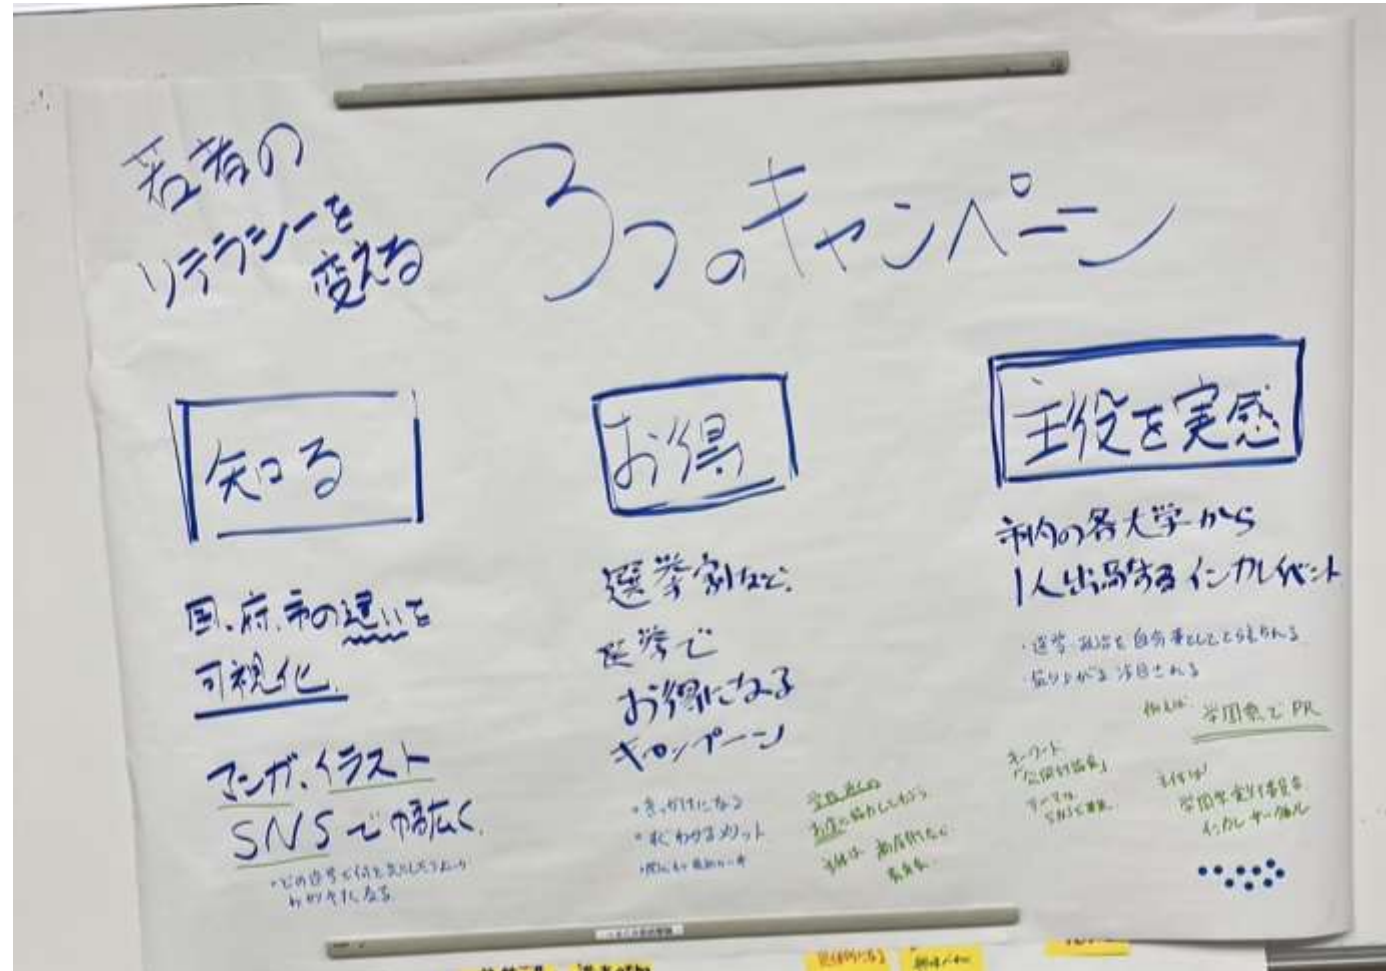 若者の
リテラシーを
変える
3つのキャンペーン
知る
国、府、市の違いを
可視化
マンガ、イラスト
SNSで幅広く
わかりやすくなる
お得
選挙割など、
選挙で
お得になる
キャンペーン
・きっかけになる
・すぐわかるメリット
学校近くの
お店に協力してもらう
主体は 商店街など
主役を実感
市内の各大学から
1人出馬するインカレイベント
・選挙、政治を自分事としてとらえられる
・盛り上がる 注目される
例えば 学園祭でPR
キーワード
「公開討論会」
テーマは
主体は
学園祭実行委員会
インカレサークル